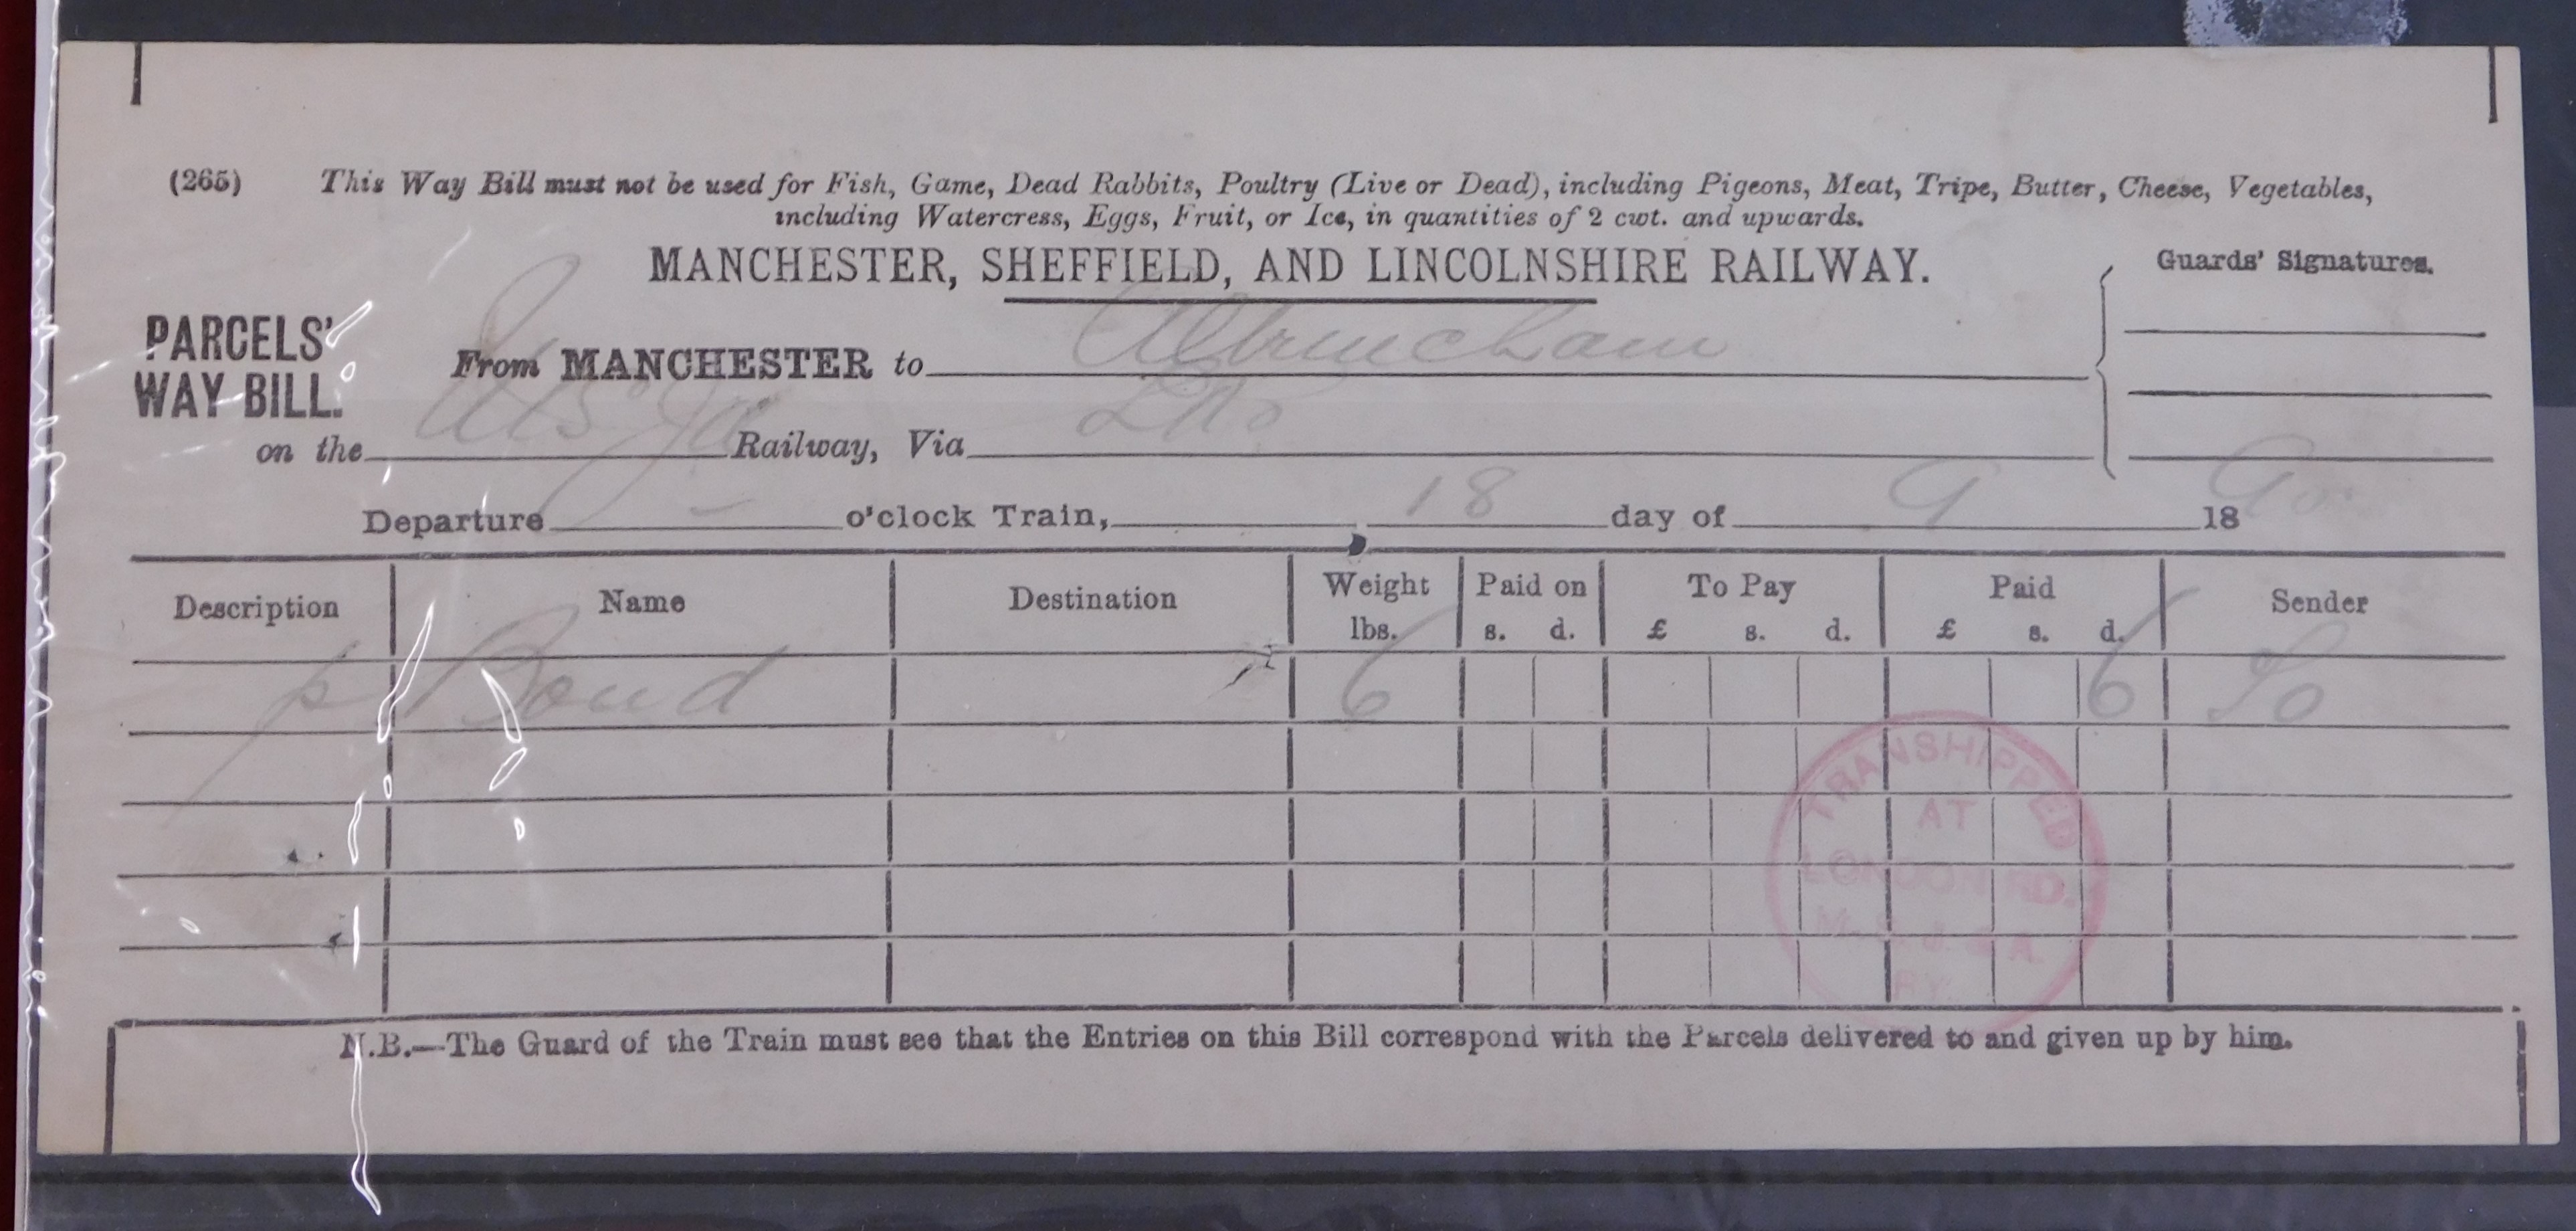 (265) This Way Bill must not be used for Fish, Game, Dead Rabbits, Poultry (Live or Dead), including Pigeons, Meat, Tripe, Butter, Cheese, Vegetables,
including Watercress, Eggs, Fruit, or Ice, in quantities of 2 cwt. and upwards.
MANCHESTER, SHEFFIELD, AND LINCOLNSHIRE RAILWAY.
Guards' Signatures.
PARCELS'
WAY BILL.
From MANCHESTER to Altrincham
on the Railway, Via
Departure - o'clock Train, 18 day of 9 1890
Description Name Destination Weight lbs. Paid on s. d. To Pay £ s. d. Paid £ s. d. Sender
p Bond 6 6
TRANSHIPPED
AT
LONDON RD.
M. S. J. & A.
RY.
N.B.—The Guard of the Train must see that the Entries on this Bill correspond with the Parcels delivered to and given up by him.